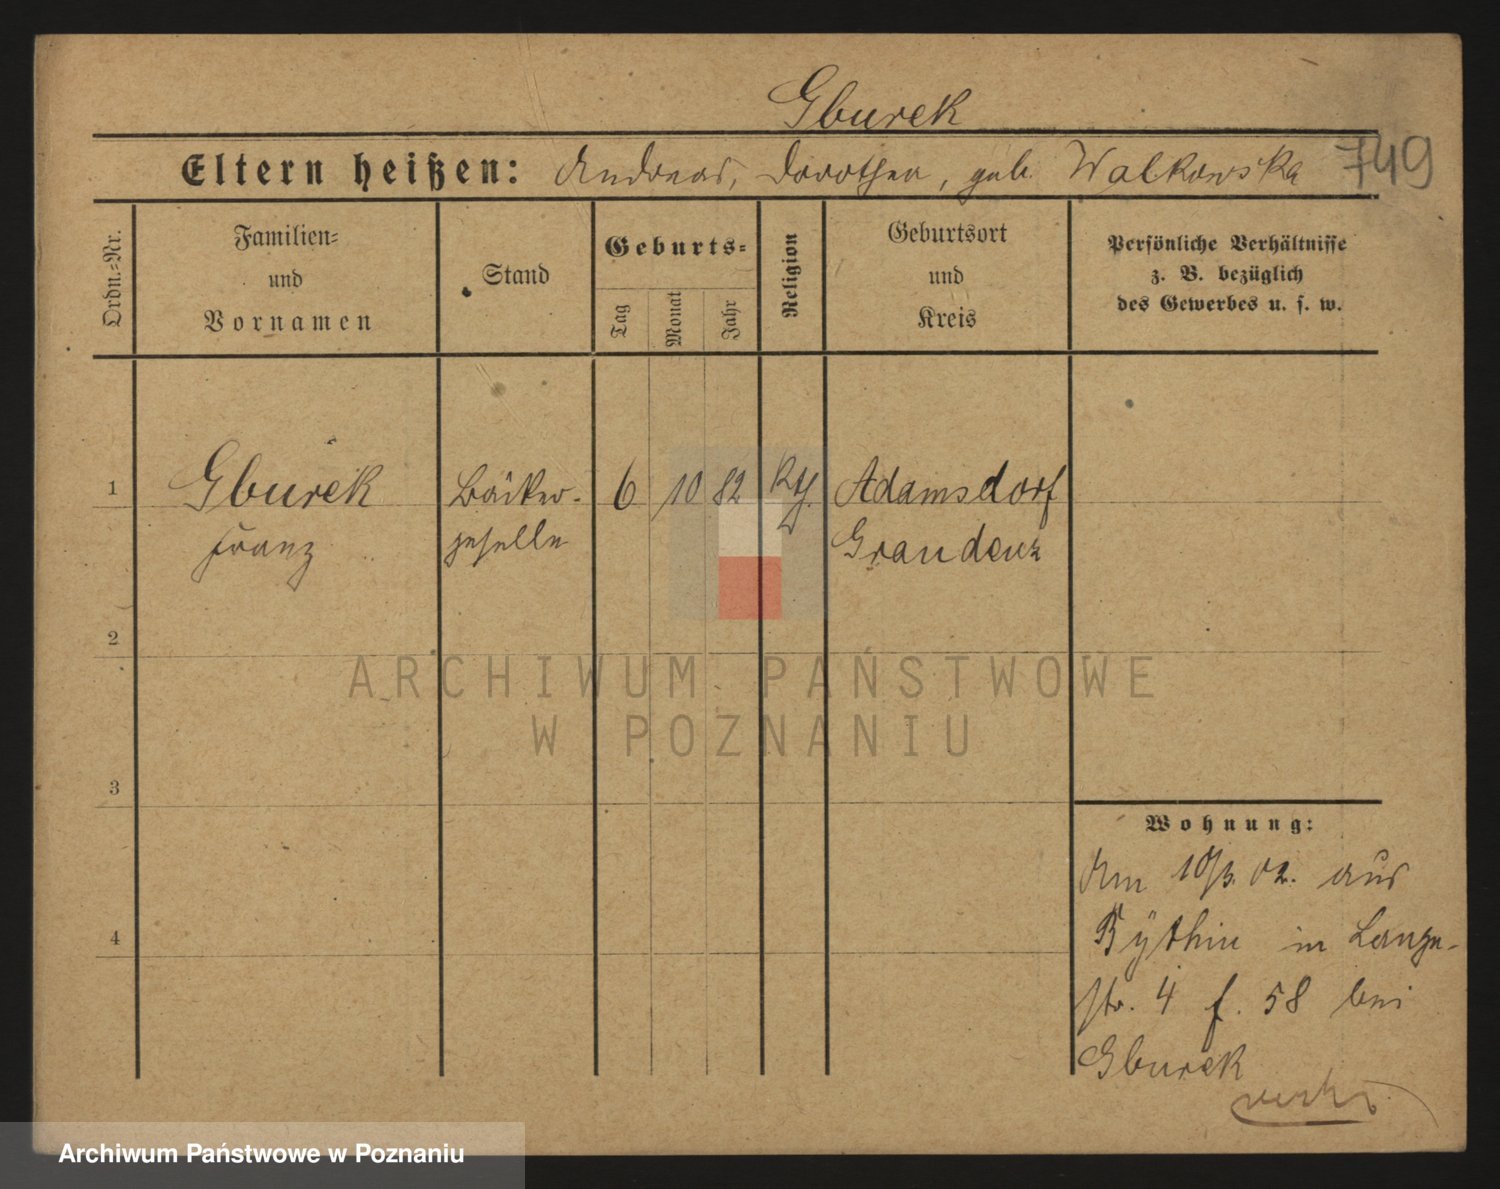 Gburek
749
Eltern heißen: Andreas, Dorothea, geb. Walkowska
Ordn.=Nr.
Familien=
und
Vornamen
Stand
Geburts=
Tag
Monat
Jahr
Religion
Geburtsort
und
Kreis
Persönliche Verhältnisse
z. B. bezüglich
des Gewerbes u. s. w.
1
Gburek
Franz
Bäcker-
geselle
6
10
82
Adamsdorf
Graudenz
2
3
4
Wohnung:
Am 10/3. 02. aus
Bÿthin in Lange-
str. 4 f. 58 bei
Gburek
ARCHIWUM PAŃSTWOWE
W POZNANIU
Archiwum Państwowe w Poznaniu